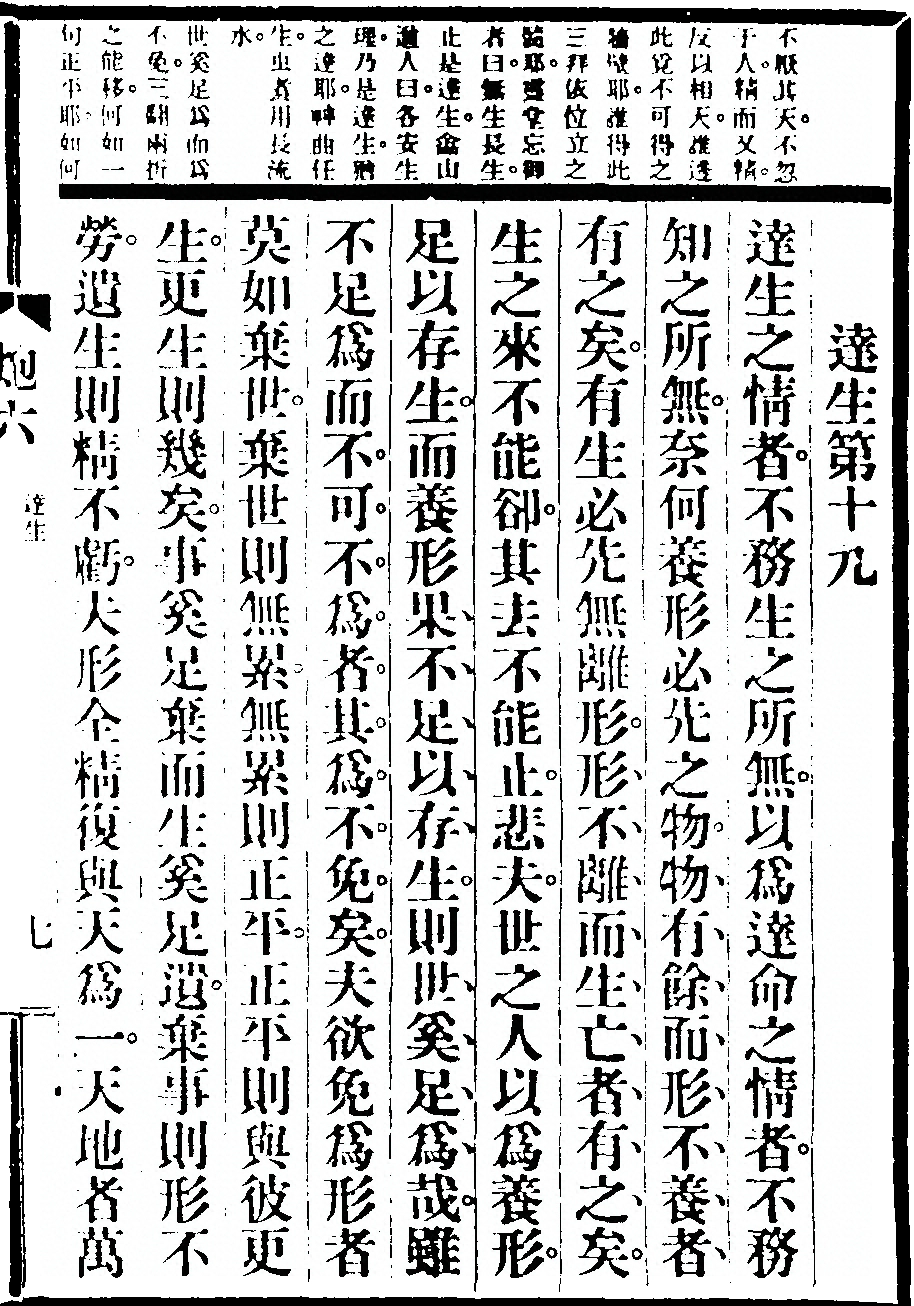 不厭其天。不忽
于人。精而又精。
反以相天。誰逃
此竟不可得之
牆壁耶。誰得此
三拜依位立之
耶。靈堂忘
者曰。無生長生。
止是達生。山
人曰。各安生
理。乃是達生。
之達耶。曲任
生虫。者用長流
水。
世奚足為而為
不免。三翻兩折
之能移。何如一
何正平耶。如何
達生第十九
達生之情者。不務生之所無。以爲達命之情者。不務
知之所無。奈何養形必先之物。物有餘而形不養者
有之矣。有生必先無離形。形不離而生亡者有之矣。
生之來不能卻。其去不能止。悲夫。世之人以爲養形。
足以存生。而養形果不足以存生。則世奚足爲哉。雖
不足爲而不可不爲者。其爲不免矣。夫欲免爲形者
莫如棄世。棄世則無累。無累則正平。正平則與彼更
生。更生則幾矣。事奚足棄而生奚足遺。棄事則形不
勞。遺生則精不虧。夫形全精復與天爲一。天地者萬
炮六
達生
七